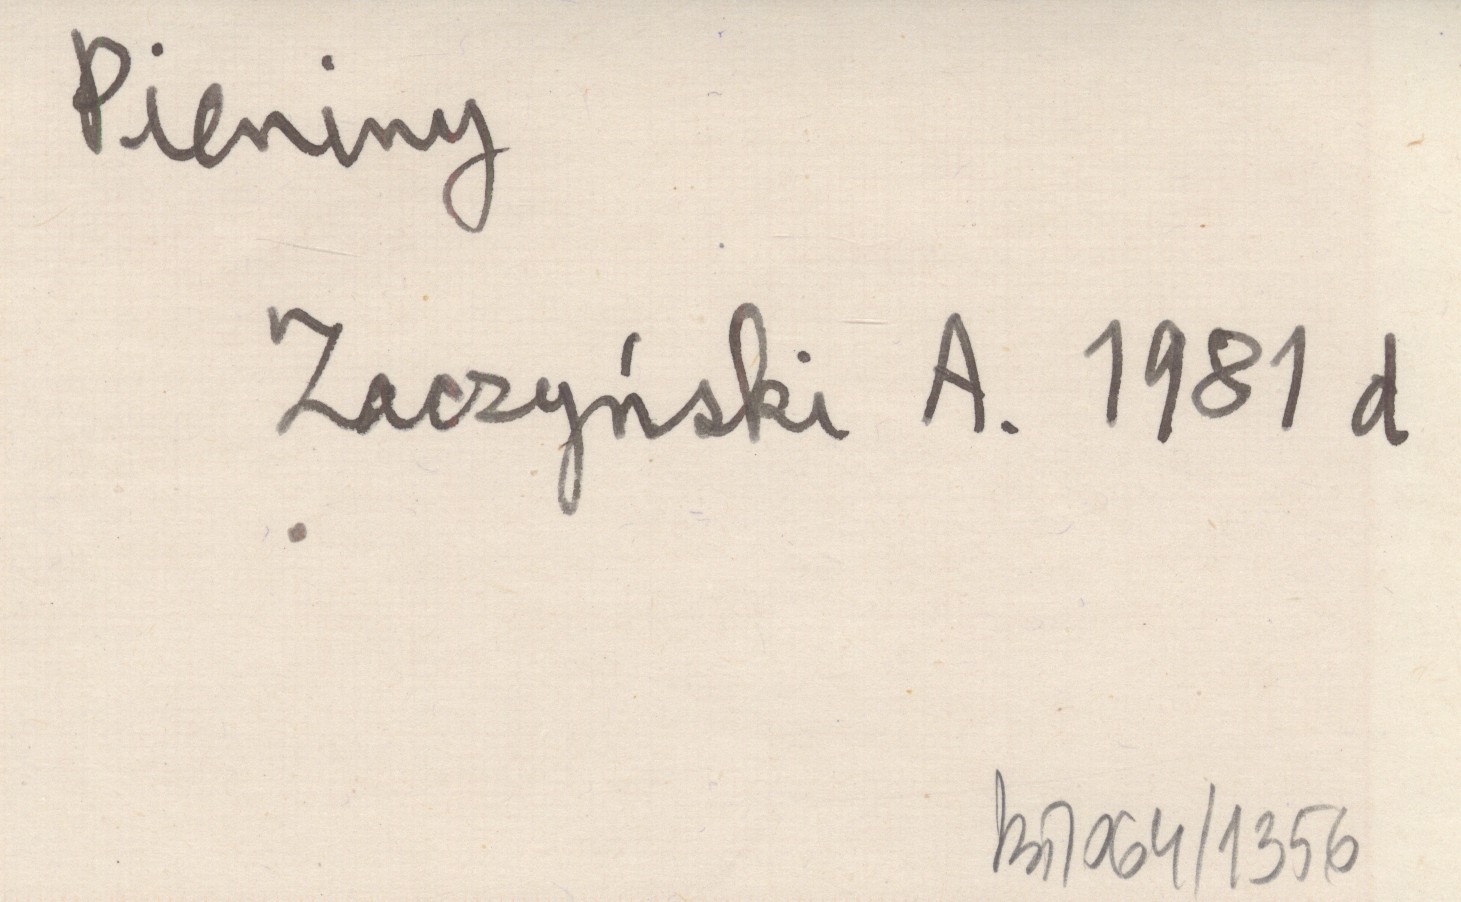 Pieniny
Zaczyński A. 1981 d
/1356